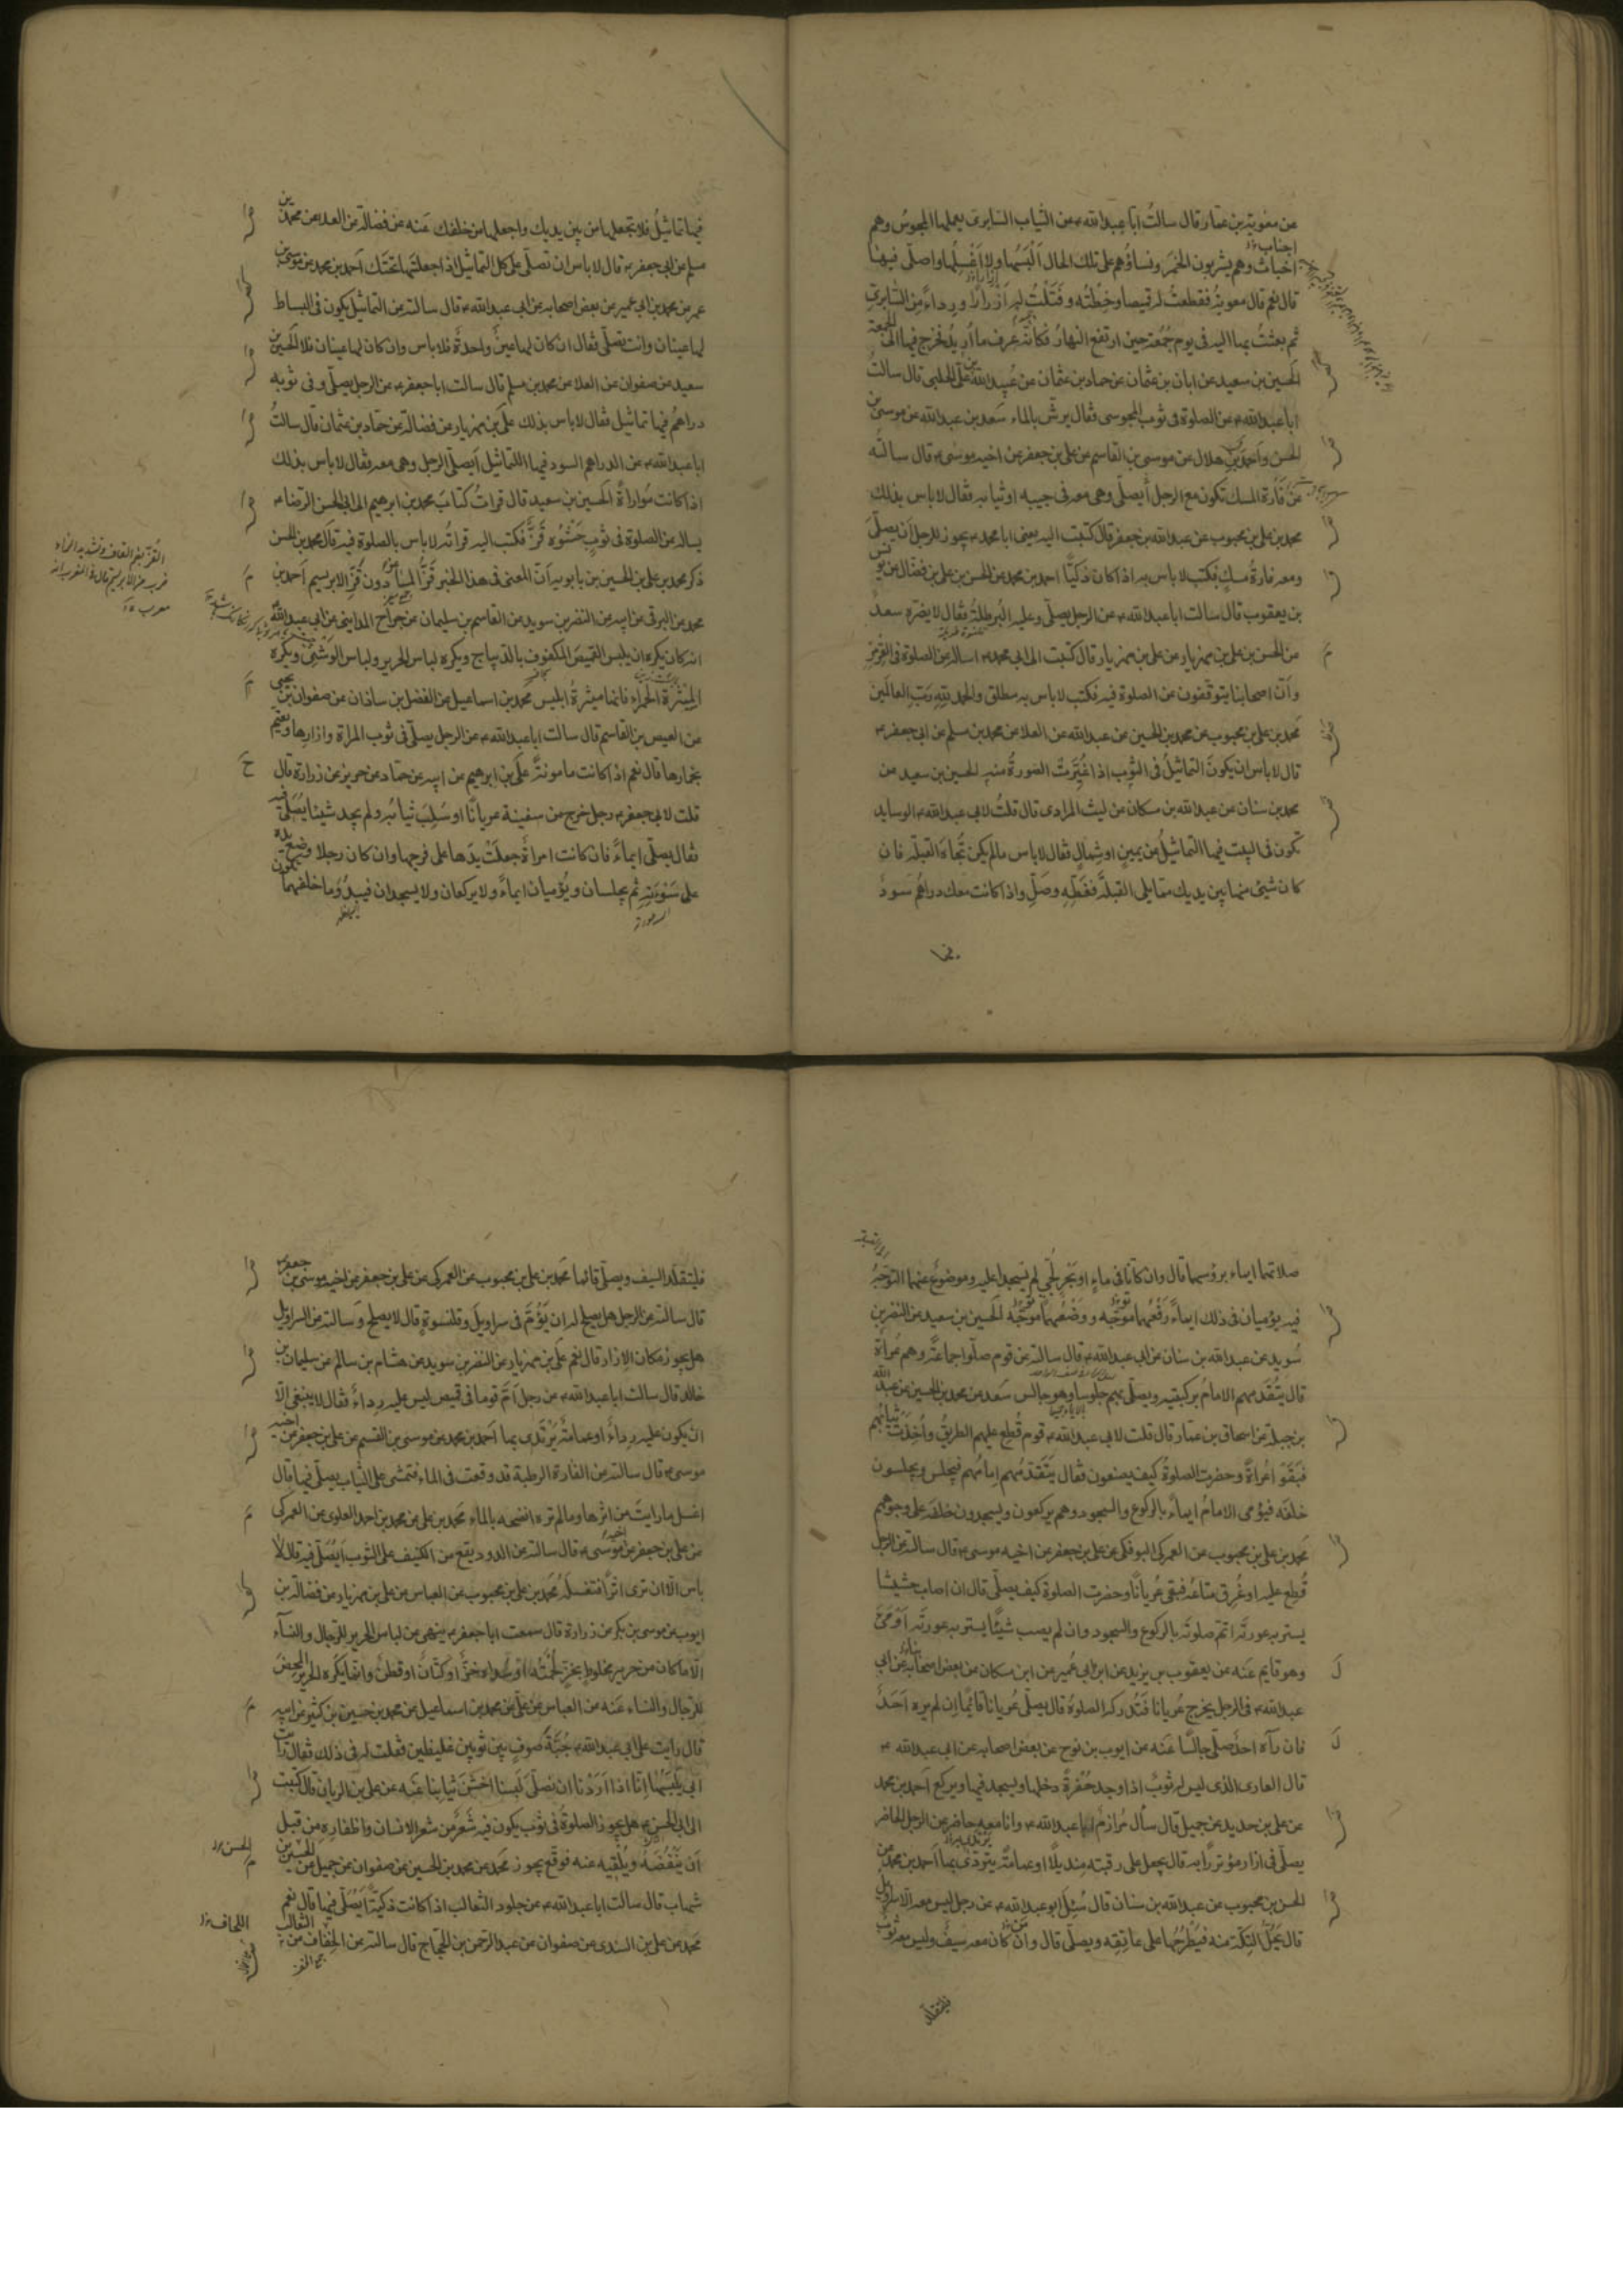 عن معوية بن عمار قال سالتُ ابا عبدالله ء عن الثياب السابرى يعملها المجوسُ وهم
اخباث وهم يشربون الخمَرَ ونساؤُهم على تلك الحال اَلْبَسُها ولا اَغْسِلُها واصلّى فيها
قال نعم قال معوية فقطعتُ له قميصا وخِطْتُه وفَتَلْتُ له اَزْرارًا ورداءً مِنَ السّابرىّ
ثم بعثتُ بها اليه فى يوم جُمُعة حين ارتفع النهارُ فكانّه عرف ما اُريدُ فخرج فيها الى الجمعة
الحسين بن سعيد عن ابان بن عثمان عن حماد بن عثمان عن عُبيد الله بن على الحلبى قال سالتُ
ابا عبدالله ء عن الصلوة فى ثوب المجوسى فقال يرشّ بالماء سَعد بن عبدالله عن موسى بن
الحسن واَحمد بن هلال عن موسى بن القاسم عن على بن جعفر عن اخيه موسى ء قال سالتُه
عن فَارَة المسك تكون مع الرجل اَيصلّى وهى معه فى جيبه او ثيابه فقال لا باس بذلك
محمد بن على بن محبوب عن عبدالله بن جعفر قال كتبت اليه يعنى ابا محمد ء يجوز للرجل اَن يصلّى
ومعه فارةُ مسكٍ فكتب لا باس به اذا كان ذكيًّا احمد بن محمد عن الحسن بن على بن فضال عن يونس
بن يعقوب قال سالت ابا عبدالله ء عن الرجل يصلّى وعليه البُرطلةُ فقال لا يضرّه سعدٌ
عن الحسن بن على بن مهزيار عن على بن مهزيار قال كتبت الى ابى محمد ء اساله عن الصلوة فى القِرمِزِ
واَنّ اصحابنا يتوقّفون عن الصلوة فيه فكتب لا باس به مطلق والحمد للهِ رَبِّ العالَمين
محمد بن على بن محبوب عن محمد بن الحسين عن عبدالله عن العلا عن محمد بن مسلم عن ابى جعفر ء
قال لا باس ان يكونَ التماثيلُ فى الثوبِ اذا غُيِّرَتْ الصورةُ منه الحسين بن سعيد عن
محمد بن سنان عن عبدالله بن مسكان عن ليث المرادى قال قلتُ لابى عبدالله ء الوسايد
تكون فى البيت فيها التماثيلُ عن يمينٍ او شمالٍ فقال لا باس ما لم يكن تُجاهَ القبلة فان
كان شيئ منها بين يديك مما يلى القبلةَ فغَطِّهِ وصَلِّ واذا كانت معك دراهُم سَودٌ
فيها تماثيلُ فلا تجعلها من بين يديك واجعلها من خلفك عَنه عن فضالة عن العلا عن محمد بن
مسلم عن ابى جعفر ء قال لا باس ان تصلّى على كل التماثيل اذا جعلتَها تحتك احمد بن محمد عن موسى بن
عمر عن محمد بن ابى عمير عن بعض اصحابه عن ابى عبدالله ء قال سالته عن التماثيل يكون فى البساط
لها عينان وانت تصلّى فقال ان كان لها عينٌ واحدةٌ فلا باس وان كان لها عينان فلا الحسين بن
سعيد عن صفوان عن العلا عن محمد بن مسلم قال سالت ابا جعفر ء عن الرجل يصلّى وفى ثوبه
دراهُم فيها تماثيل فقال لا باس بذلك علىّ بن مهزيار عن فضالة عن حماد بن عثمان قال سالتُ
ابا عبدالله ء عن الدراهم السود فيها التماثيل اَيصلّى الرجل وهى معه فقال لا باس بذلك
اذا كانت مُواراةً الحسين بن سعيد قال قراتُ كتابَ محمد بن ابرهيم الى ابى الحسن الرضا ء
يساله عن الصلوة فى ثوبٍ حَشْوُه قَزٌّ فكتب اليه قراتُه لا باس بالصلوة فيه قال محمد بن الحسن
ذكر محمد بن على بن الحسين بن بابويه اَنّ المعنى فى هذا الخبر قَزُّ الماعز دُون قَزِّ الابريسم اَحمد بن
محمد عن البرقى عن ابيه عن النضر بن سويد عن القاسم بن سليمان عن جراح المداينى عن ابى عبدالله
انه كان يكره ان يلبس القميص المكفوف بالديباج ويكره لباس الحرير ولباس الوَشْىِ ويكره
المِيْثَرةَ الحمراء فانها ميثرةُ ابليس محمد بن اسماعيل عن الفضل بن شاذان عن صفوان بن يحيى
عن العيص بن القاسم قال سالت ابا عبدالله ء عن الرجل يصلّى فى ثوب المراة وازارها ويعتمّ
بخمارها قال نعم اذا كانت مامونةً على بن ابرهيم عن ابيه عن حماد عن حريز عن زرارة قال
قلت لابى جعفر ء رجل خرج من سفينة عريانًا او سُلِبَ ثيابُه ولم يجد شيئا يُصَلّى فيه
فقال يصلّى ايماءً فان كانت امراةً جعلَتْ يدَها على فرجها وان كان رجلا وضع يده
على سَوْءتِه ثم يجلسان ويُؤميان ايماءً ولا يركعان ولا يسجدان فيبدُوَ ما خلفهما
صلاتهما ايماء برؤسهما قال وان كانا فى ماءٍ او بَحْرٍ لُجّىٍ لم يسجدا عليه وموضوعٌ عنهما التوجّهُ
فيه يؤميان فى ذلك ايماءً رَفْعُهما توجّه ووضْعُهما توجّه الحسين بن سعيد عن النضر بن
سُويد عن عبدالله بن سنان عن ابى عبدالله ء قال سالته عن قوم صلّوا جماعةً وهم عُراةٌ
قال يتَقدّمهم الامامُ بركبتيه ويصلّى بهم جلوسا وهو جالس سَعد عن محمد بن الحسين عن عبدالله
بن جبلة عن اسحاق بن عمار قال قلت لابى عبدالله ء قوم قُطِع عليهم الطريقُ واُخِذَتْ ثيابُهم
فبَقَوا عُراةً وحضرتِ الصلوةُ كيف يصنعون فقال يَتقدّمُهم اِمامُهم فيجلس ويجلسون
خلفَه فيؤمى الامامُ ايماءً بالركوع والسجود وهم يركعون ويسجدون خلفَه على وجوههم
محمد بن على بن محبوب عن العمركى البوفكى عن على بن جعفر عن اخيه موسى ء قال سالته عن الرجل
قُطِع عليه او غُرِق متاعُه فبقى عُريانًا وحضرت الصلوة كيف يصلّى قال ان اصاب حشيشا
يستر به عورتَه اتمّ صلوتَه بالركوع والسجود وان لم يصب شيئًا يستر به عورتَه اَوْمَئَ
وهو قايم عَنه عن يعقوب بن يزيد عن ابن ابى عُمير عن ابن مسكان عن بعض اصحابه عن ابى
عبدالله ء فى الرجل يخرج عُريانا فتُدركه الصلوةُ قال يصلّى عُريانًا قائِمًا اِن لم يره اَحَدٌ
فان رآه احدٌ صلّى جالسًا عَنه عن ايوب بن نوح عن بعض اصحابه عن ابى عبدالله ء
قال العارى الذى ليس له ثوبٌ اذا وجد حُفرةً دخلها ويسجد فيها ويركع اَحمد بن محمد
عن على بن حديد عن جميل قال سأل مُرازمٌ ابا عبدالله ء وانا معه حاضر عن الرجل الحاضر
يصلّى فى ازار مؤتزرًا به قال يجعل على رقبته مِنديلًا او عمامةً يتردّى بها اَحمد بن محمد عن
الحسن بن محبوب عن عبدالله بن سنان قال سُئِلَ ابو عبدالله ء عن رجل ليس معه الّا سراويلُ
قال يَحُلّ التِكّةَ منه فيَطْرَحُها على عاتِقِه ويصلّى قال وان كان معه سَيفٌ وليس معه ثوبٌ
فليتقلد السيف ويصلّى قائما محمد بن على بن محبوب عن العمركى عن على بن جعفر عن اخيه موسى بن جعفر
قال سالته عن الرجل هل يصلح له ان يَؤُمَّ فى سراويلَ وقلنسوةٍ قال لا يصلح وسالته عن السراويل
هل يجوز مكان الازار قال نعم على بن مهزيار عن النضر بن سويد عن هشام بن سالم عن سليمان بن
خالد قال سالت ابا عبدالله ء عن رجل اَمَّ قوما فى قميص ليس عليه رداءٌ فقال لا ينبغى اِلّا
ان يكون عليه رداءٌ او عمامةٌ يَرْتَدى بها اَحمد بن محمد عن موسى بن القسم عن على بن جعفر عن اخيه
موسى ء قال سالته عن الفارة الرطبة قد وقعت فى الماء فتمشى على الثياب يصلّى فيها قال
اغسل ما رايتَ من اثرها وما لم تره انضحه بالماء محمد بن على عن محمد بن احمد العلوى عن العمركى
عن على بن جعفر عن اخيه موسى ء قال سالته عن الدود يقع من الكنيف على الثوب اَيُصَلّى فيه قال لا
باس الّا ان ترى اثرًا فتغسلَه محمد بن على بن محبوب عن العباس عن على بن مهزيار عن فضالة بن
ايوب عن موسى بن بكر عن زرارة قال سمعت ابا جعفر ء ينهى عن لباس الحرير للرجال والنساء
الّا ما كان من حرير مخلوط بخزٍّ لُحْمَتُه او سداه خزٌّ او كتّانٌ او قطنٌ وانما يكره الحرير المحض
للرجال والنساء عَنه عن العباس عن على عن محمد بن اسماعيل عن محمد بن حسين بن كثير عن ابيه
قال رايت على ابى عبدالله ء جُبّةَ صُوفٍ بين ثوبين غليظين فقلت له فى ذلك فقال رايت
ابى يلبسُها اِنّا اذا اَرَدْنا ان نصلّى لَبِسنا اخشَنَ ثيابنا عَنه عن على بن الريان قال كتبت
الى ابى الحسن ء هل يجوز الصلوةُ فى ثوب يكون فيه شَعَرٌ من شعر الانسان واظفاره من قبل
اَن يَنْفُضَه ويُلْقِيَه عنه فوقّع يجوز محمد عن محمد بن الحسين عن صفوان عن جميل عن الحسين بن
شهاب قال سالت ابا عبدالله ء عن جلود الثعالب اذا كانت ذكيّةً اَيُصَلّى فيها قال نعم
محمد عن على بن السندى عن صفوان عن عبد الرحمن بن الحجاج قال سالته عن الخِفاف من الثعالب